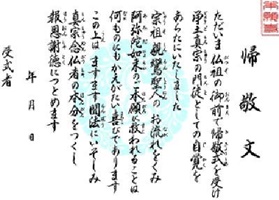 帰敬文
ただいま 仏祖の御前で帰敬式を受け
浄土真宗の門徒としての自覚を
あらたにいたしました
宗祖 親鸞聖人のお流れをくみ
阿弥陀如来の本願に救われることは
何ものにもかえがたい喜びであります
この上は ますます聞法にいそしみ
真宗念仏者の本分をつくし
報恩謝徳につとめます
年 月 日
受式者